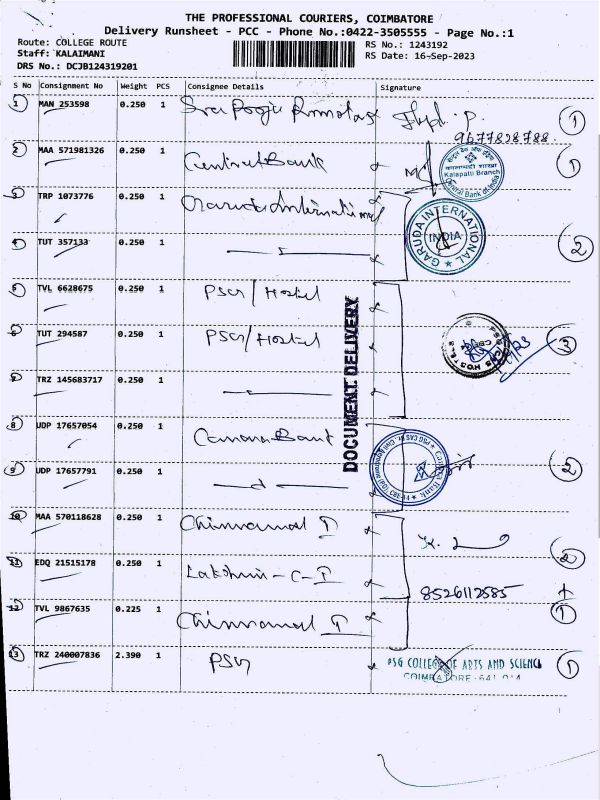 THE PROFESSIONAL COURIERS, COIMBATORE
Delivery Runsheet - PCC - Phone No.:0422-3505555 - Page No.:1
Route: COLLEGE ROUTE RS No.: 1243192
Staff: KALAIMANI RS Date: 16-Sep-2023
DRS No.: DCJB124319201
S No Consignment No Weight PCS Consignee Details Signature
1 MAN 253598 0.250 1 1
9677828788
2 MAA 571981326 0.250 1 Central Bank Kalapatti Branch Central Bank of India 1
3 TRP 1073776 0.250 1 Garuda International
4 TUT 357133 0.250 1 GARUDA INTERNATIONAL INDIA 2
5 TVL 6628675 0.250 1 PSG/Hostel
6 TUT 294587 0.250 1 PSG/Hostel PSG CAS HOSTELS 3
7 TRZ 145683717 0.250 1
DOCUMENT DELIVERY
8 UDP 17657054 0.250 1 Canara Bank
9 UDP 17657791 0.250 1 Canara Bank 2
10 MAA 570118628 0.250 1 Chinnamal I
11 EDQ 21515178 0.250 1 Lakshmi-C-I 2
8526112585 +
12 TVL 9867635 0.225 1 Chinnamal I 1
13 TRZ 240007836 2.390 1 PSG PSG COLLEGE OF ARTS AND SCIENCE 1
COIMBATORE-641 014